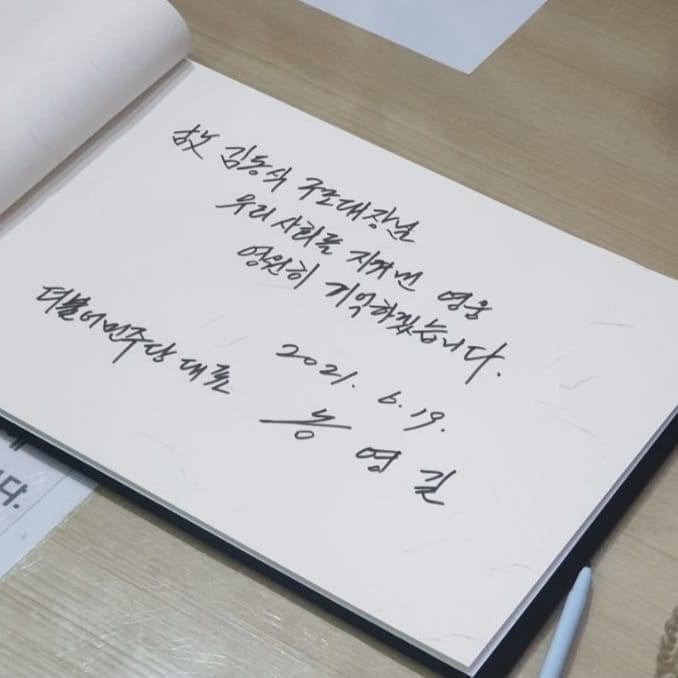 故 김동식 구조대장님
우리 사회를 지켜낸 영웅
영원히 기억하겠습니다.
2021. 6. 19.
더불어민주당 대표 송영길
다.